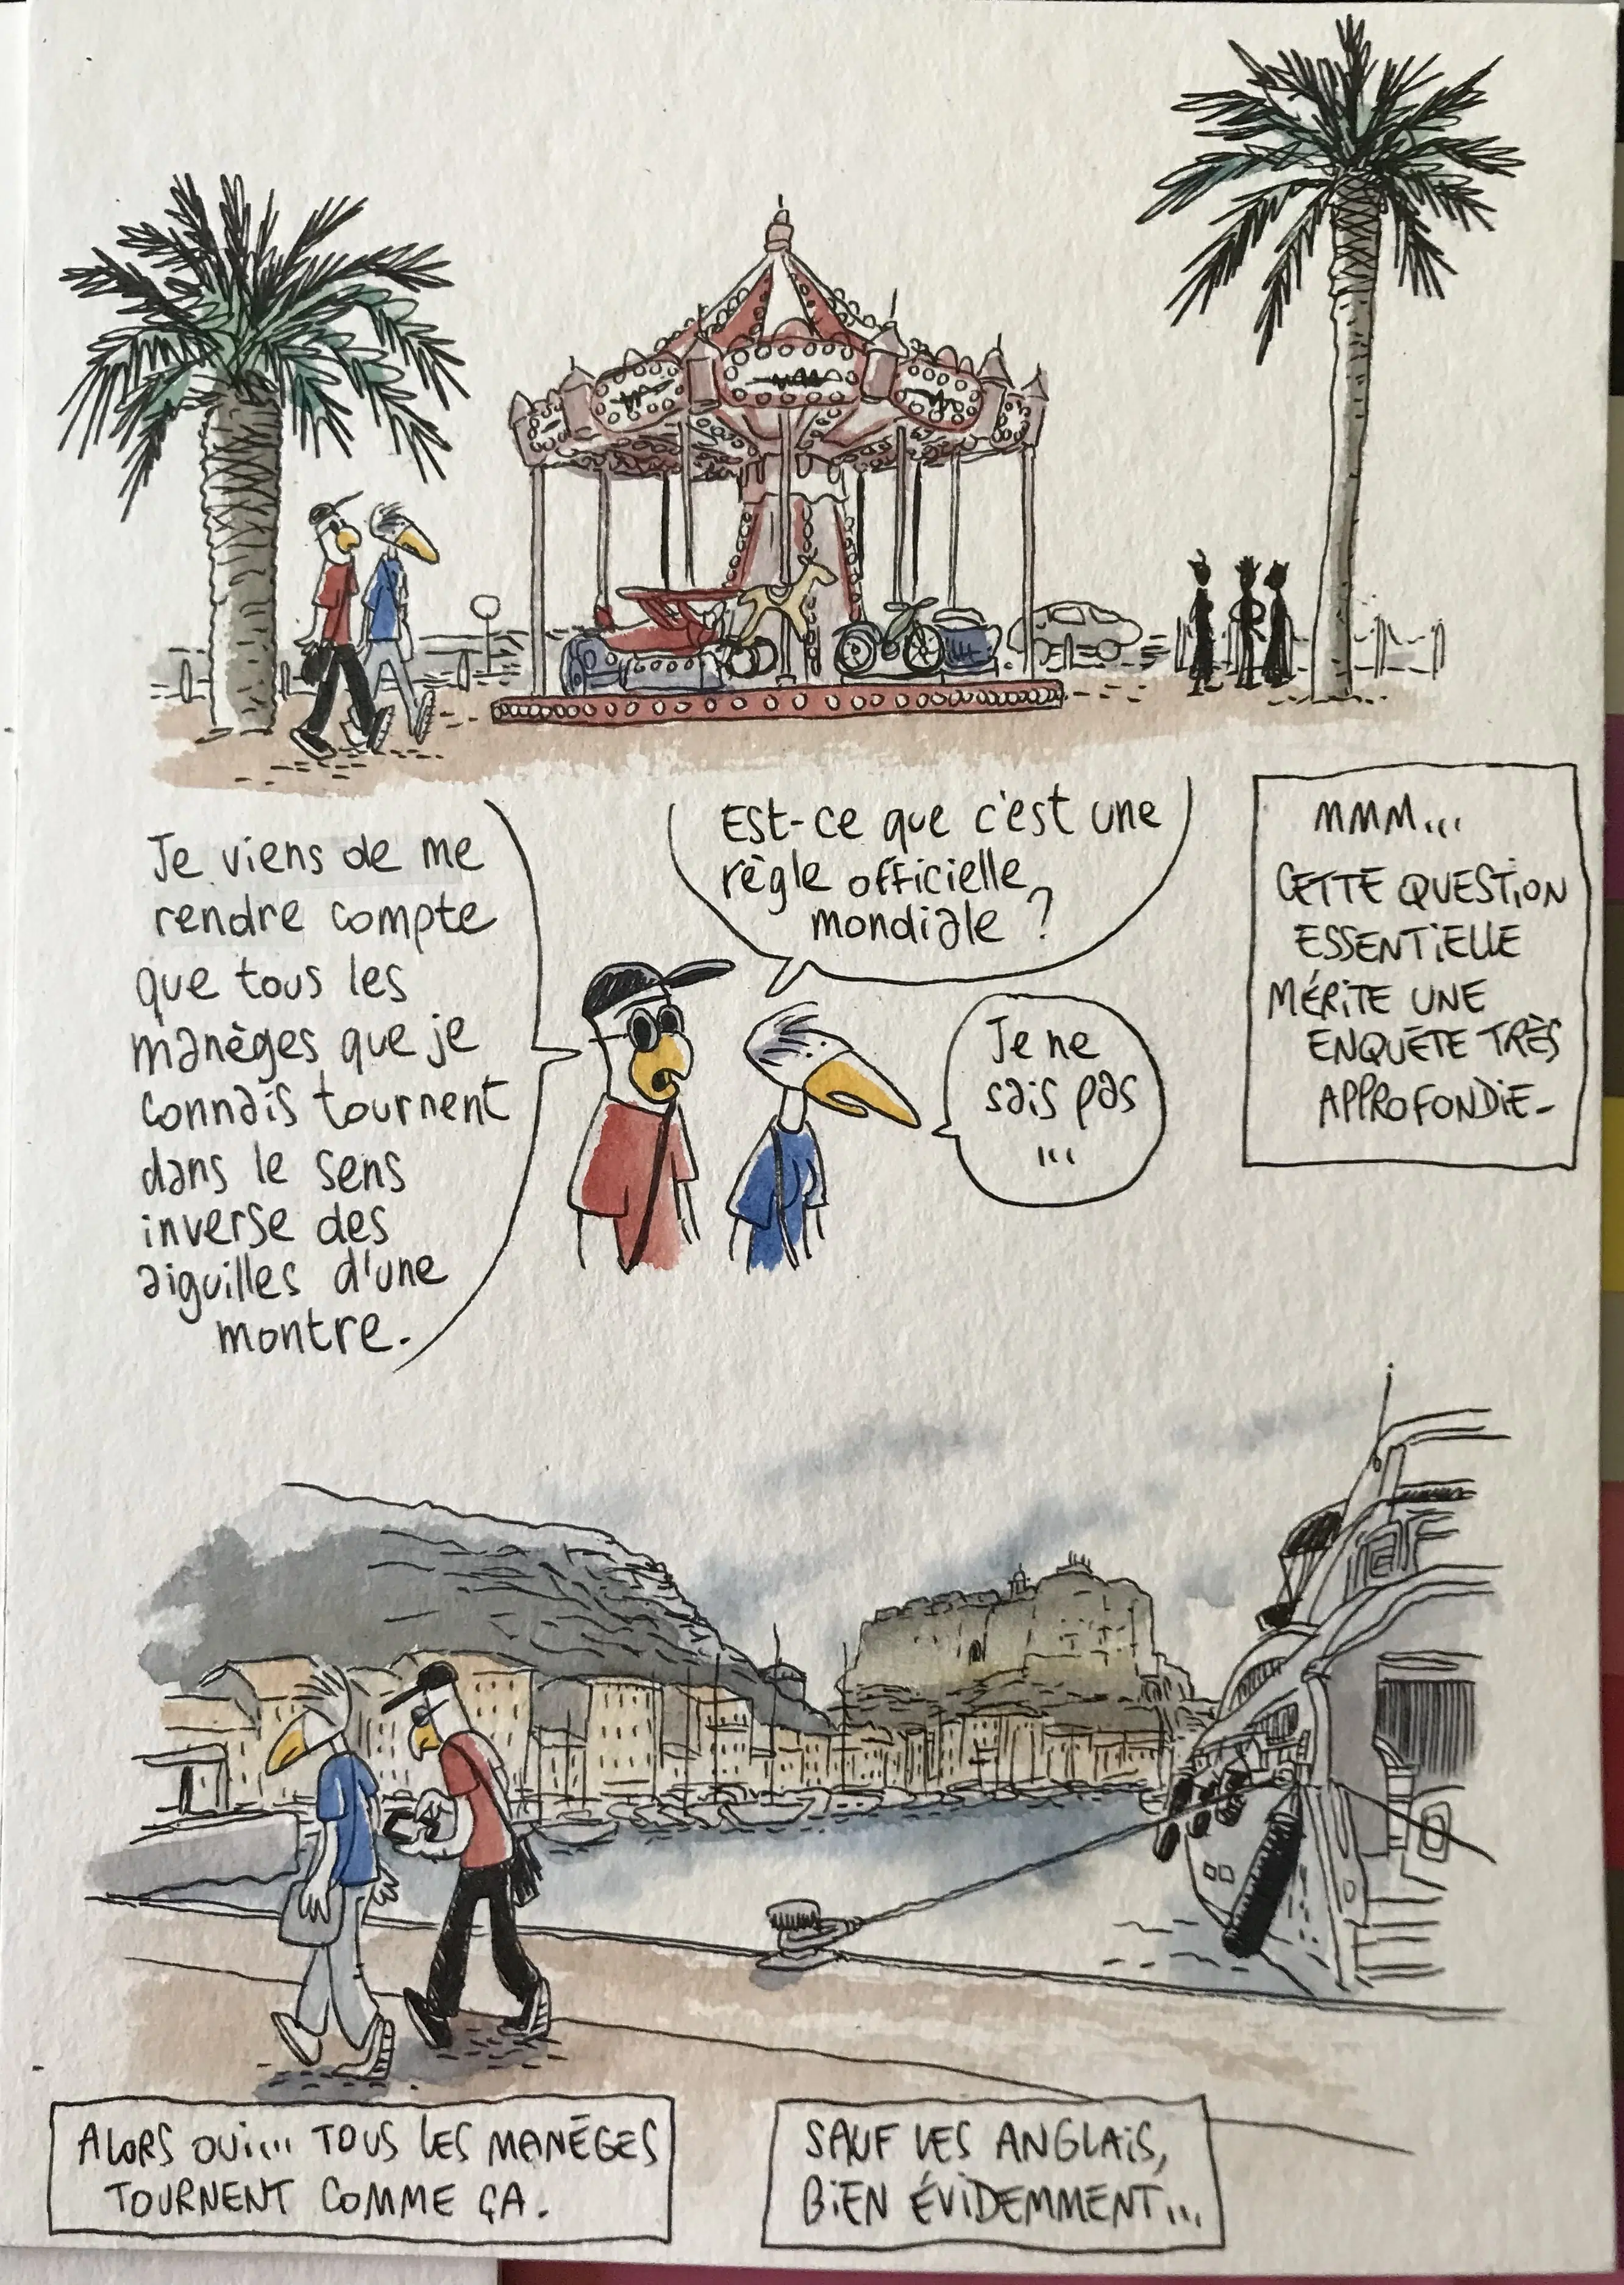 Je viens de me
rendre compte
que tous les
manèges que je
connais tournent
dans le sens
inverse des
aiguilles d'une
montre.
Est-ce que c'est une
règle officielle
mondiale ?
Je ne
sais pas
...
MMM...
CETTE QUESTION
ESSENTIELLE
MÉRITE UNE
ENQUÊTE TRÈS
APPROFONDIE.
ALORS OUI.... TOUS LES MANÈGES
TOURNENT COMME ÇA.
SAUF LES ANGLAIS,
BIEN ÉVIDEMMENT...